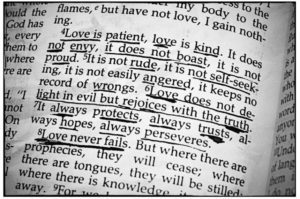 my body to the
flames, but have not love, I gain noth-
ing.
4Love is patient, love is kind. It does
not envy, it does not boast, it is not
proud. 5It is not rude, it is not self-seek-
ing, it is not easily angered, it keeps no
record of wrongs. 6Love does not de-
light in evil but rejoices with the truth.
7It always protects, always trusts, al-
ways hopes, always perseveres.
8Love never fails. But where there are
prophecies, they will cease; where
there are tongues, they will be stilled;
where there is knowledge, it
away. 9For we